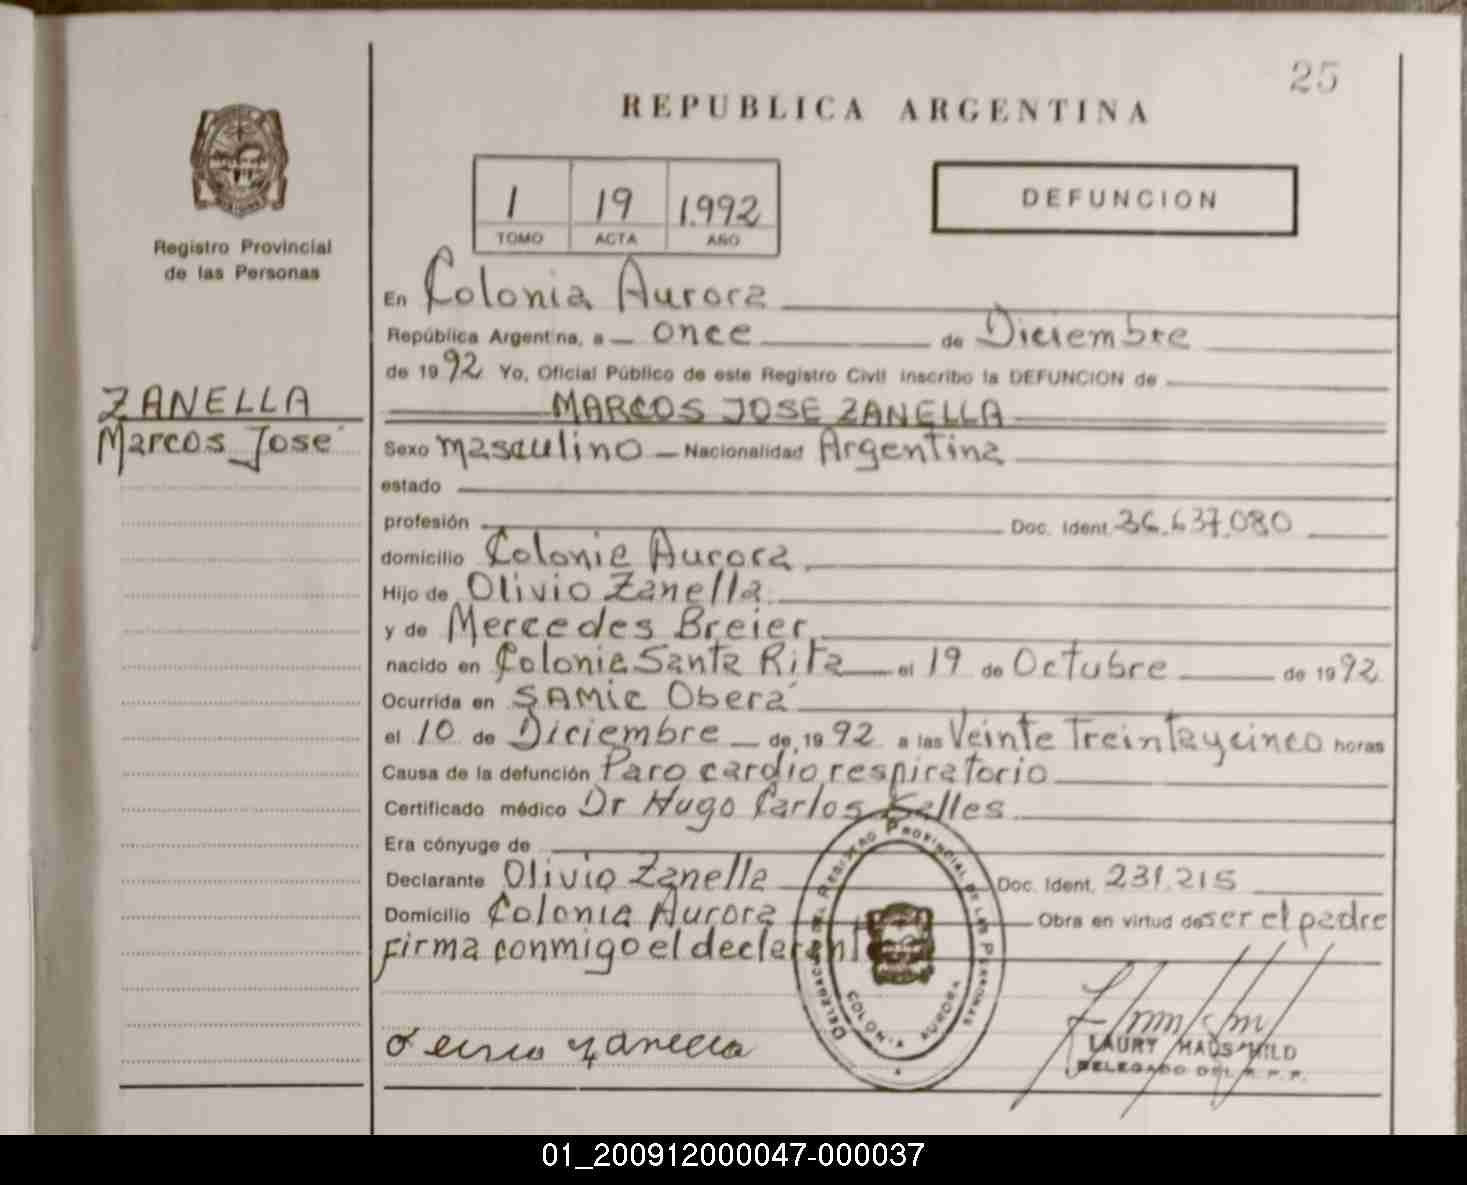 25
REPUBLICA ARGENTINA
1 19 1.992
TOMO ACTA AÑO
DEFUNCION
Registro Provincial
de las Personas
ZANELLA
Marcos José
En Colonia Aurora
República Argentina, a once de Diciembre
de 1992 Yo, Oficial Público de este Registro Civil inscribo la DEFUNCION de
MARCOS JOSE ZANELLA
Sexo masculino Nacionalidad Argentina
estado
profesión Doc. Ident. 36.637.080
domicilio Colonia Aurora
Hijo de Olivio Zanella
y de Mercedes Breier
nacido en Colonia Santa Rita el 19 de Octubre de 1992
Ocurrida en SAMIC Oberá
el 10 de Diciembre de 1992 a las Veinte Treintaycinco horas
Causa de la defunción Paro cardio respiratorio
Certificado médico Dr Hugo Carlos Selles
Era cónyuge de
Declarante Olivio Zanella Doc. Ident. 231.215
Domicilio Colonia Aurora Obra en virtud de ser el padre
Firma conmigo el declarante
DELEGACION DEL REGISTRO PROVINCIAL DE LAS PERSONAS
COLONIA AURORA
LAURY HAUSCHILD
DELEGADO DEL R.P.P.
01_200912000047-000037